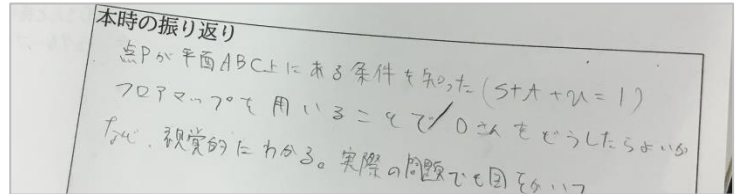 本時の振り返り
点Pが平面ABC上にある条件を知った(s+t+u=1)
フロアマップを用いることで/Oさんをどうしたらよいか
など、視覚的にわかる。実際の問題でも図をかいて